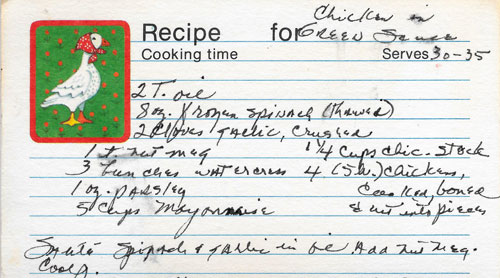 Recipe for Chicken in
GREEN Sauce
Cooking time Serves 30-35
2 T. oil
8 oz. frozen spinach (thawed)
2 cloves garlic, crushed
1 t. nut meg 1 1/4 cups chic. stock
3 bunches watercress 4 (5 lb.) chickens,
1 oz. parsley cooked, boned
5 cups mayonnaise & cut into pieces
Sauté spinach & garlic in oil. Add nut meg.
Cool.
Recipe from the kitchen of